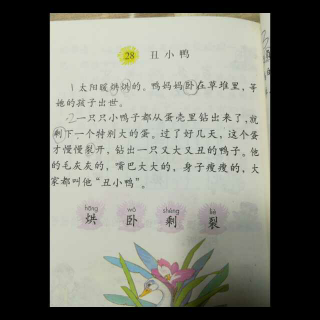 28 丑小鸭
1 太阳暖烘烘的，鸭妈妈卧在草堆里，等
她的孩子出世。
2 一只只小鸭子都从蛋壳里钻出来了，就
剩下一个特别大的蛋。过了好几天，这个蛋
才慢慢裂开，钻出一只又大又丑的鸭子。他
的毛灰灰的，嘴巴大大的，身子瘦瘦的，大
家都叫他“丑小鸭”。
hōng wò shèng liè
烘 卧 剩 裂